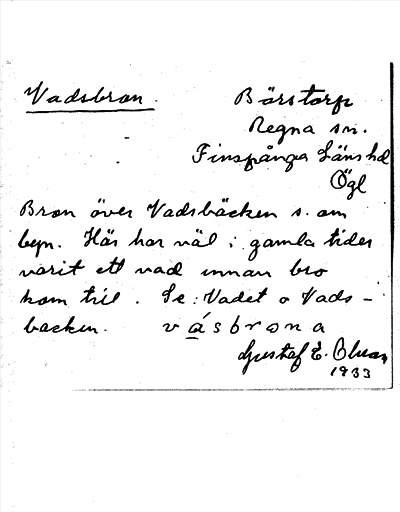 Vadsbron.
Börstorp
Regna sn.
Finspånga Läns hd
Ögl
Bron över Vadsbäcken s. om
byn. Här har väl i gamla tider
varit ett vad innan bro
kom till. Se: Vadet o Vads-
backen. vásbrona
Gustaf E. Olsson
1933